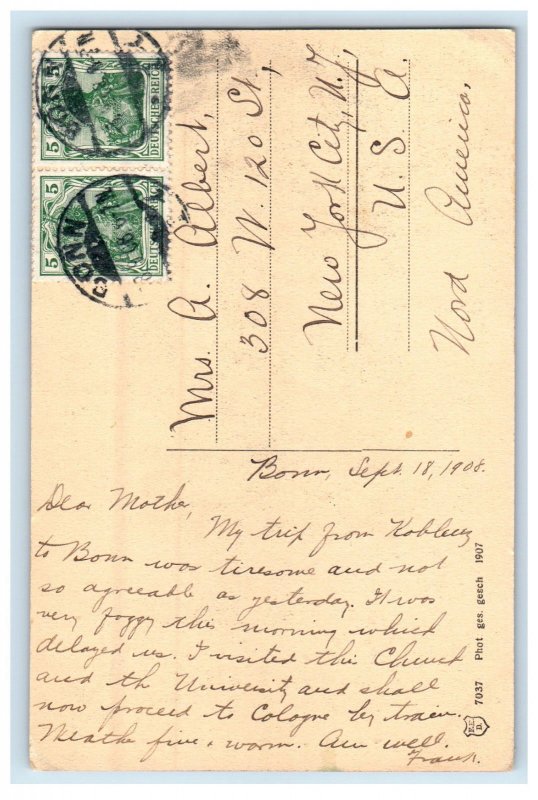 5 5
DEUTSCHES REICH
BONN
5 5
DEUTSCHES REICH
BONN
Mrs. A. Albert,
308 W. 120 St.,
New York City, N.Y.
U. S. A.
Nord America.
Bonn, Sept. 18, 1908.
Dear Mother,
My trip from Koblenz
to Bonn was tiresome and not
so agreeable as yesterday. It was
very foggy this morning which
delayed us. I visited this Church
and the University and shall
now proceed to Cologne by train.
Weather fine & warm. Am well.
Frank.
7037 Phot ges. gesch 1907